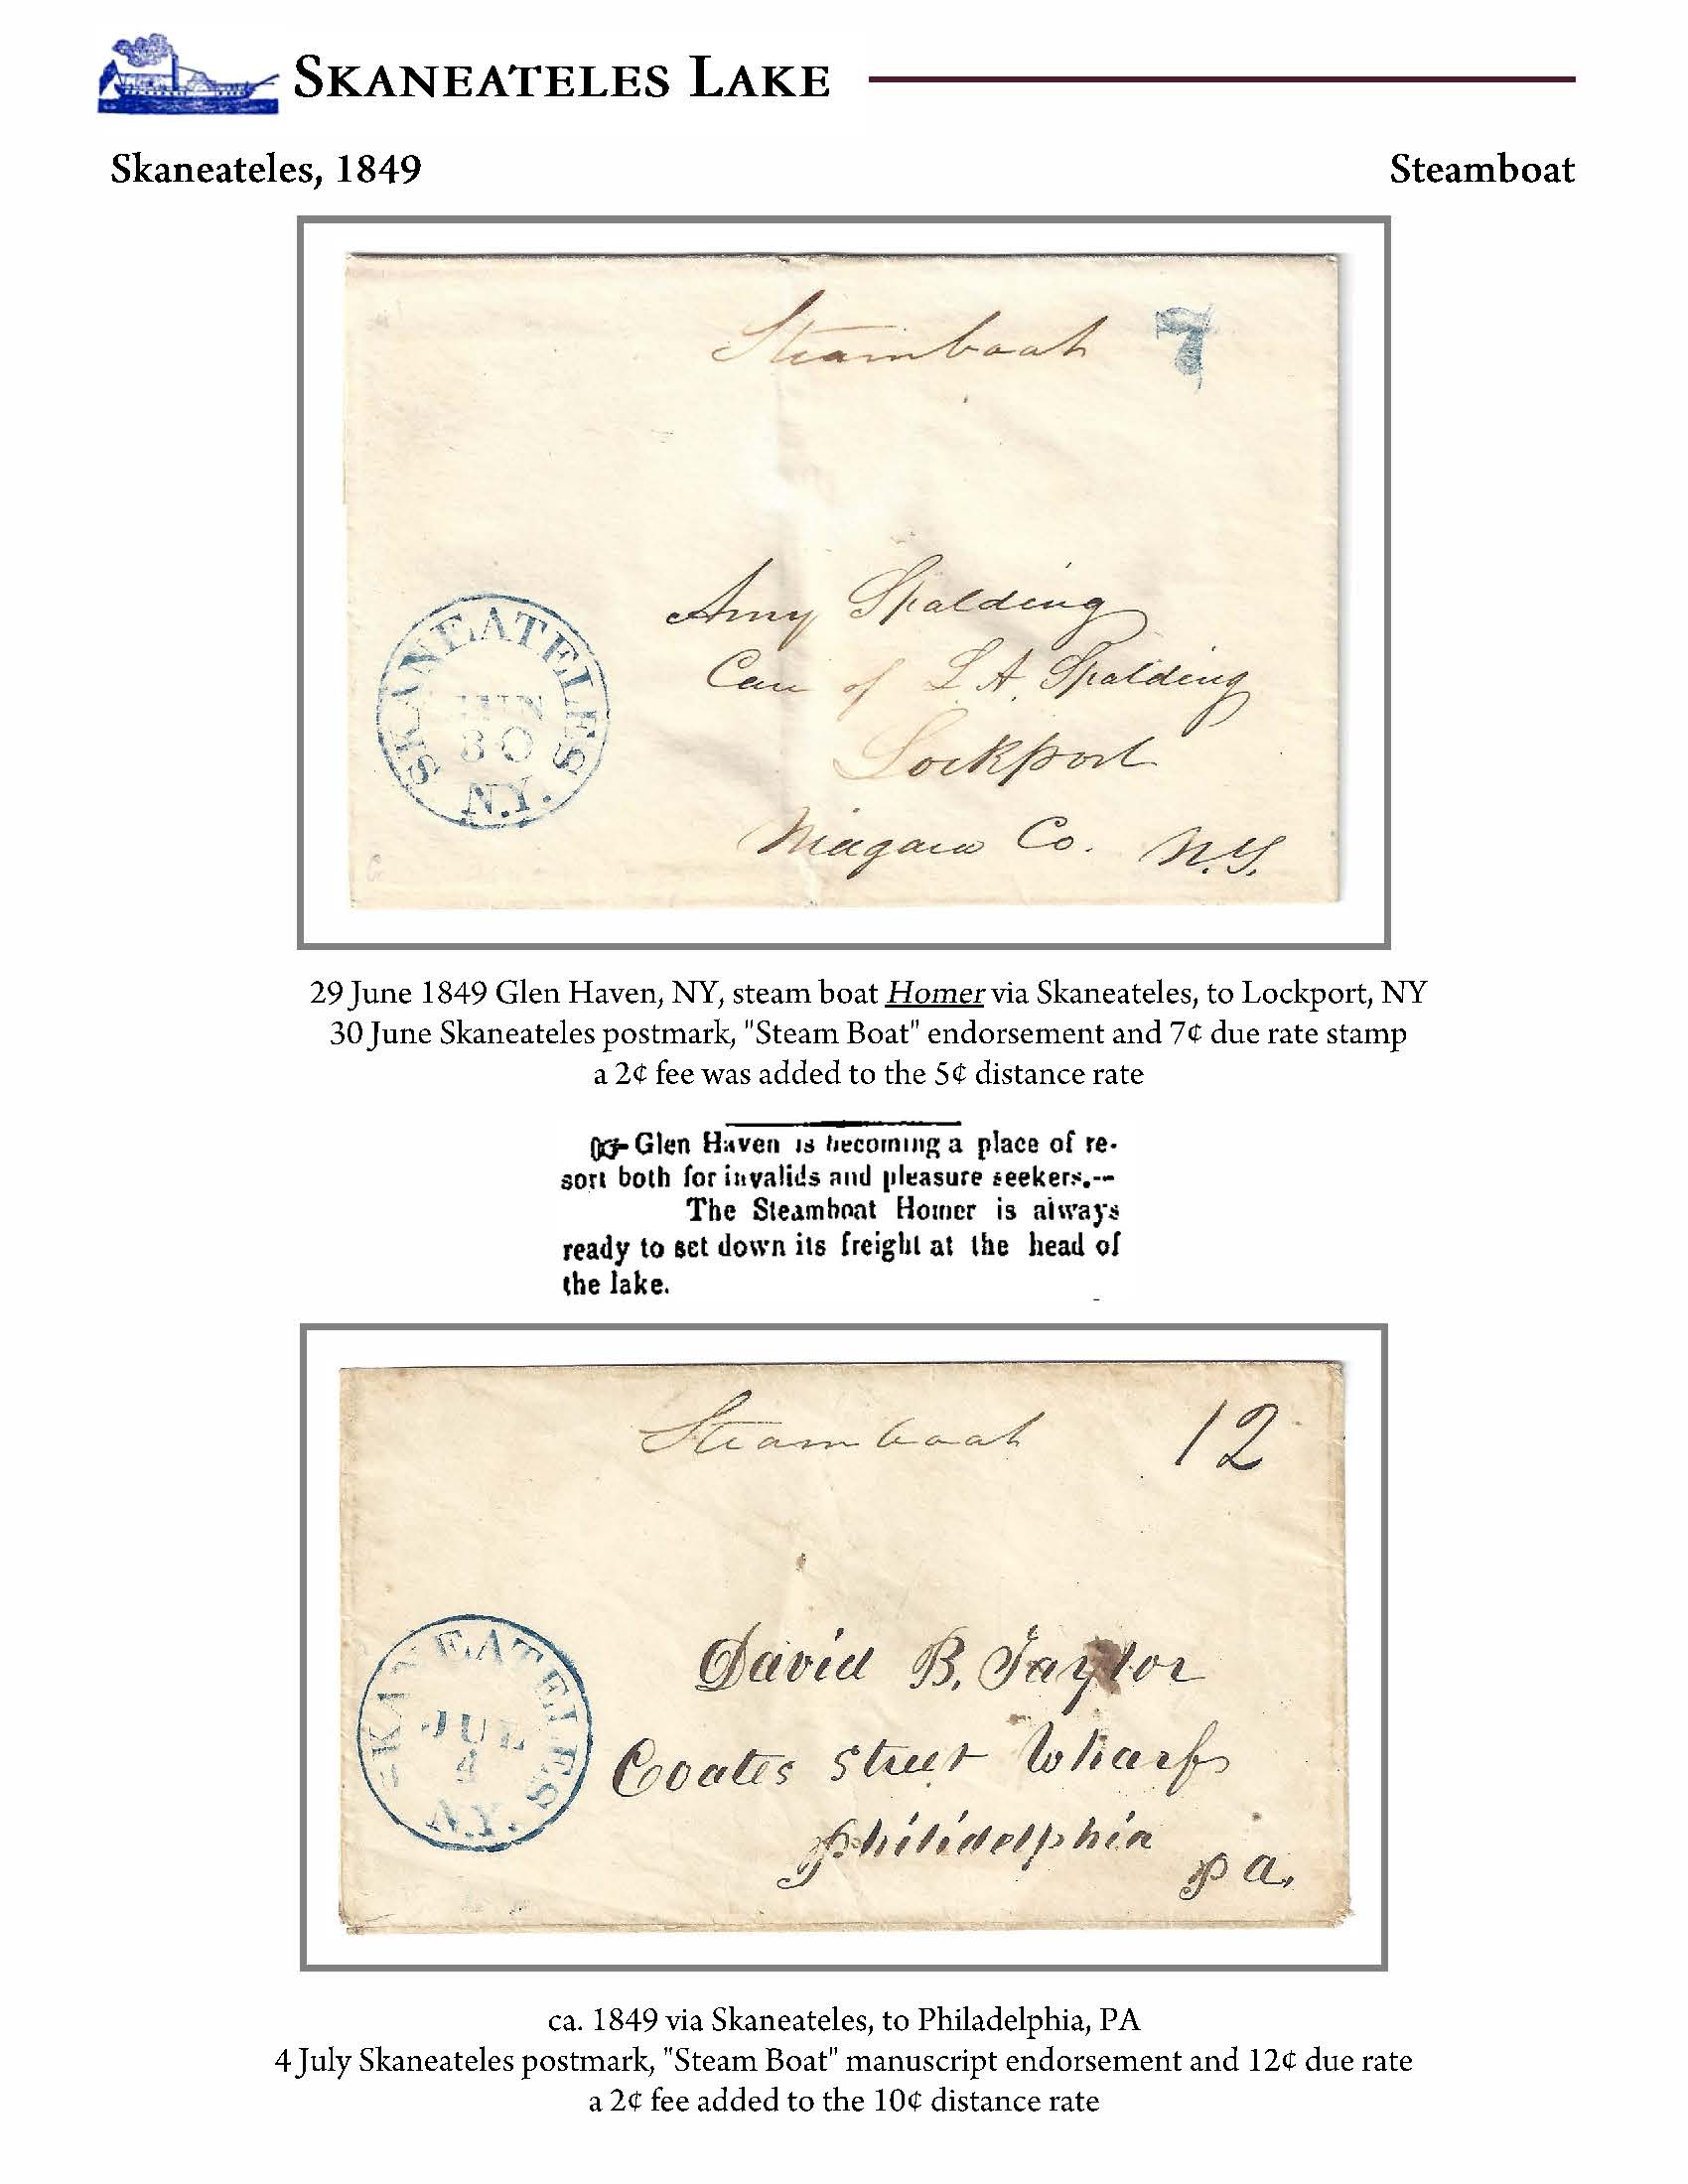 SKANEATELES LAKE
Skaneateles, 1849 Steamboat
Steamboat 7
Amy Spalding
Care of L. A. Spalding
Lockport
Niagara Co. N.Y.
SKANEATELES
JUN
30
N.Y.
29 June 1849 Glen Haven, NY, steam boat Homer via Skaneateles, to Lockport, NY
30 June Skaneateles postmark, "Steam Boat" endorsement and 7¢ due rate stamp
a 2¢ fee was added to the 5¢ distance rate
☞ Glen Haven is becoming a place of re-
sort both for invalids and pleasure seekers.--
The Steamboat Homer is always
ready to set down its freight at the head of
the lake.
Steamboat 12
David B. Taylor
Coates Street Wharf
Philidelphia
Pa.
SKANEATELES
JUL
4
N.Y.
ca. 1849 via Skaneateles, to Philadelphia, PA
4 July Skaneateles postmark, "Steam Boat" manuscript endorsement and 12¢ due rate
a 2¢ fee added to the 10¢ distance rate